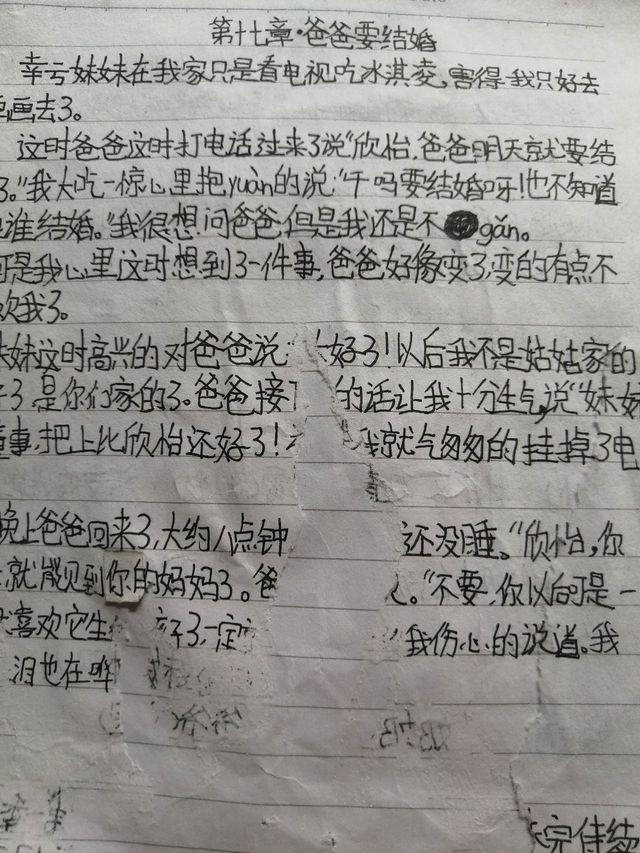 第十七章·爸爸要结婚
幸亏妹妹在我家只是看电视吃冰淇凌,害得我只好去
画去了。
这时爸爸这时打电话过来了说“欣怡,爸爸明天就要结
了。”我大吃一惊心里抱yuàn的说:“干吗要结婚呀!也不知道
谁结婚。”我很想问爸爸,但是我还是不gǎn。
可是我心里这时想到了一件事,爸爸好像变了,变的有点不
欢我了。
妹这时高兴的对爸爸说: 好了!以后我不是姑姑家的
了是你们家的了。爸爸接 的话让我十分生气,说“妹妹
事,把上比欣怡还好了! 我就气匆匆的挂掉了电
晚上爸爸回来了,大约八点钟 还没睡。“欣怡,你
就能见到你的妈妈了。爸 “不要,你以前可是一
喜欢它生 了,一定 “我伤心的说道。我
泪也在哗
未完待续